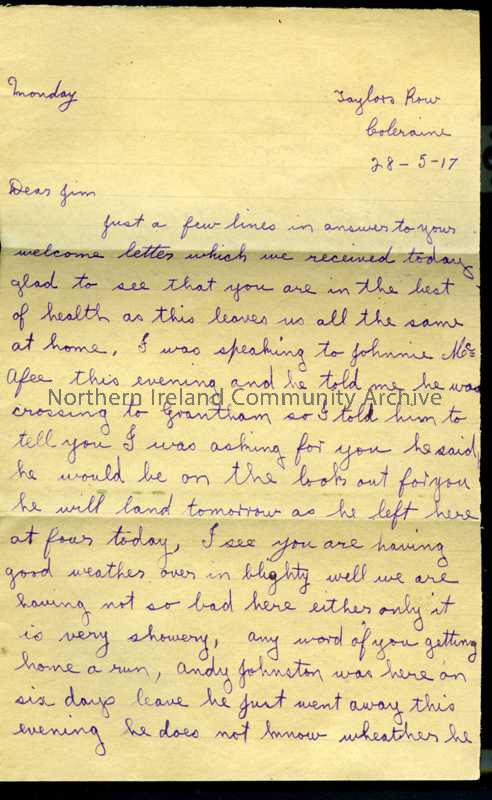 Monday
Taylors Row
Coleraine
28-5-17
Dear Jim
Just a few lines in answer to your
welcome letter which we received today
glad to see that you are in the best
of health as this leaves us all the same
at home, I was speaking to Johnnie Mc
Afee this evening and he told me he was
Northern Ireland Community Archive
crossing to Grantham so I told him to
tell you I was asking for you he said,
he would be on the look out for you
he will land tomorrow as he left here
at four today, I see you are having
good weather over in blighty well we are
having not so bad here either only it
is very showery, any word of you getting
home a run, Andy Johnston was here on
six days leave he just went away this
evening he does not know wheather he